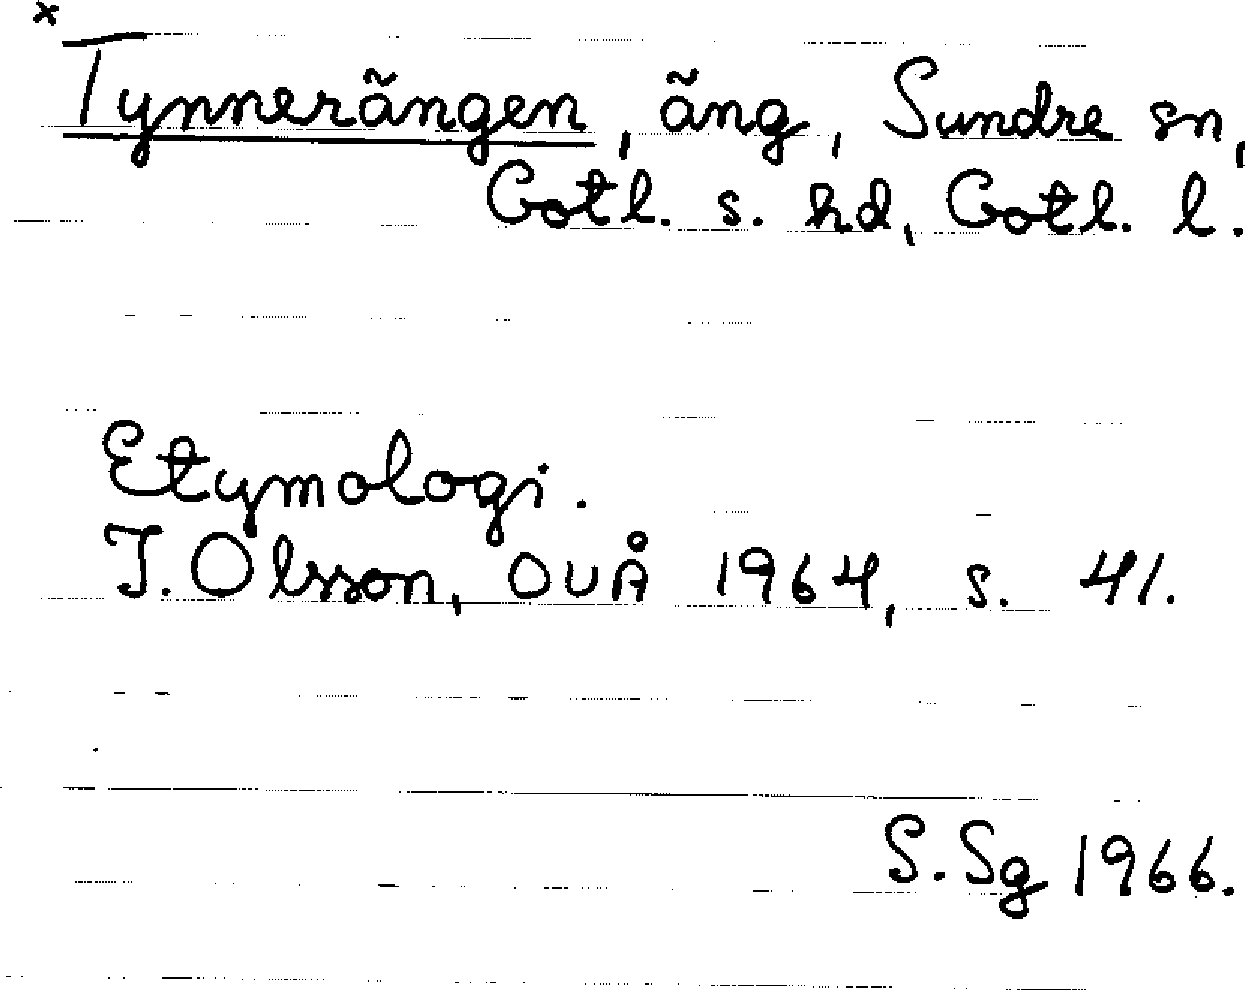 x
Tynnerängen, äng, Sundre sn,
Gotl. s. hd, Gotl. l.
Etymologi.
I. Olsson, OUÅ 1964, s. 41.
S. Sg 1966.